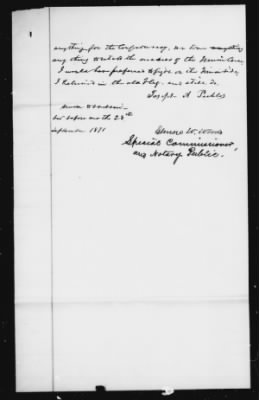 anything for the Confederacy, nor done anything
any thing to their success of the
I would have preferred to fight on the Union side,
I believed in the old flag. and still do
Joseph A Pickle
Sworn & subscri-
bed before me the 28th
September 1871
Special Commissioner,
and Notary Public.